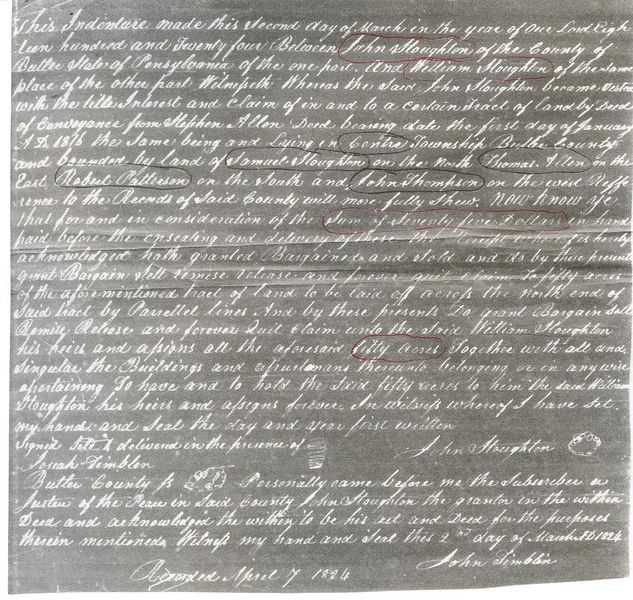 This Indenture made this Second day of March in the year of Our Lord Eigh
teen hundred and Twenty four Between John Stoughton of the County of
Butler State of Pensylvania of the one part. And William Stoughton of the same
place of the other part Witnesseth Whereas the Said John Stoughton became
with the title Interest and Claim of in and to a certain Tract of land by Deed
of Conveyance from Stephen Allen Deed bearing date the first day of January
A.D 1815 the Same being and Lying in Centre Township Butler County
and bounded by land of Samuel Stoughton on the North Thomas Allen on the
East Robert Patterson on the South and John Thompson on the west Reffe
rence to the Records of Said County will more fully Shew. Now Know ye
that for and in consideration of the Sum of Seventy five Dollars in hand
paid before the ensealing and delivery of these the receipt is hereby
acknowledged hath granted Bargained and Sold and do by these presents
grant Bargain Sell remise release and forever quit claim To fifty
of the aforementioned tract of land to be laid off across the north end of
Said tract by Parrellel lines And by these presents Do grant Bargain Sell
Remise Release and forever Quit Claim unto the Said William Stoughton
his heirs and assigns all the aforesaid fifty acres Together with all and
Singular the Buildings and thereunto belonging or in any wise
apertaining To have and to hold the Said fifty acres to him the Said William
Stoughton his heirs and assigns forever. In witness whereof I have Set
my hand and Seal the day and year first written
Signed & delivered in the presence of John Stoughton
Josiah Timblin
Butler County Ss Personally came before me the Subscriber a
Justice of the Peace in Said County John Stoughton the grantor in the within
Deed and acknowledged the within to be his act and Deed for the purposes
therein mentioned. Witness my hand and Seal this 2nd day of March AD 1824
John Timblin
Recorded April 7 1824